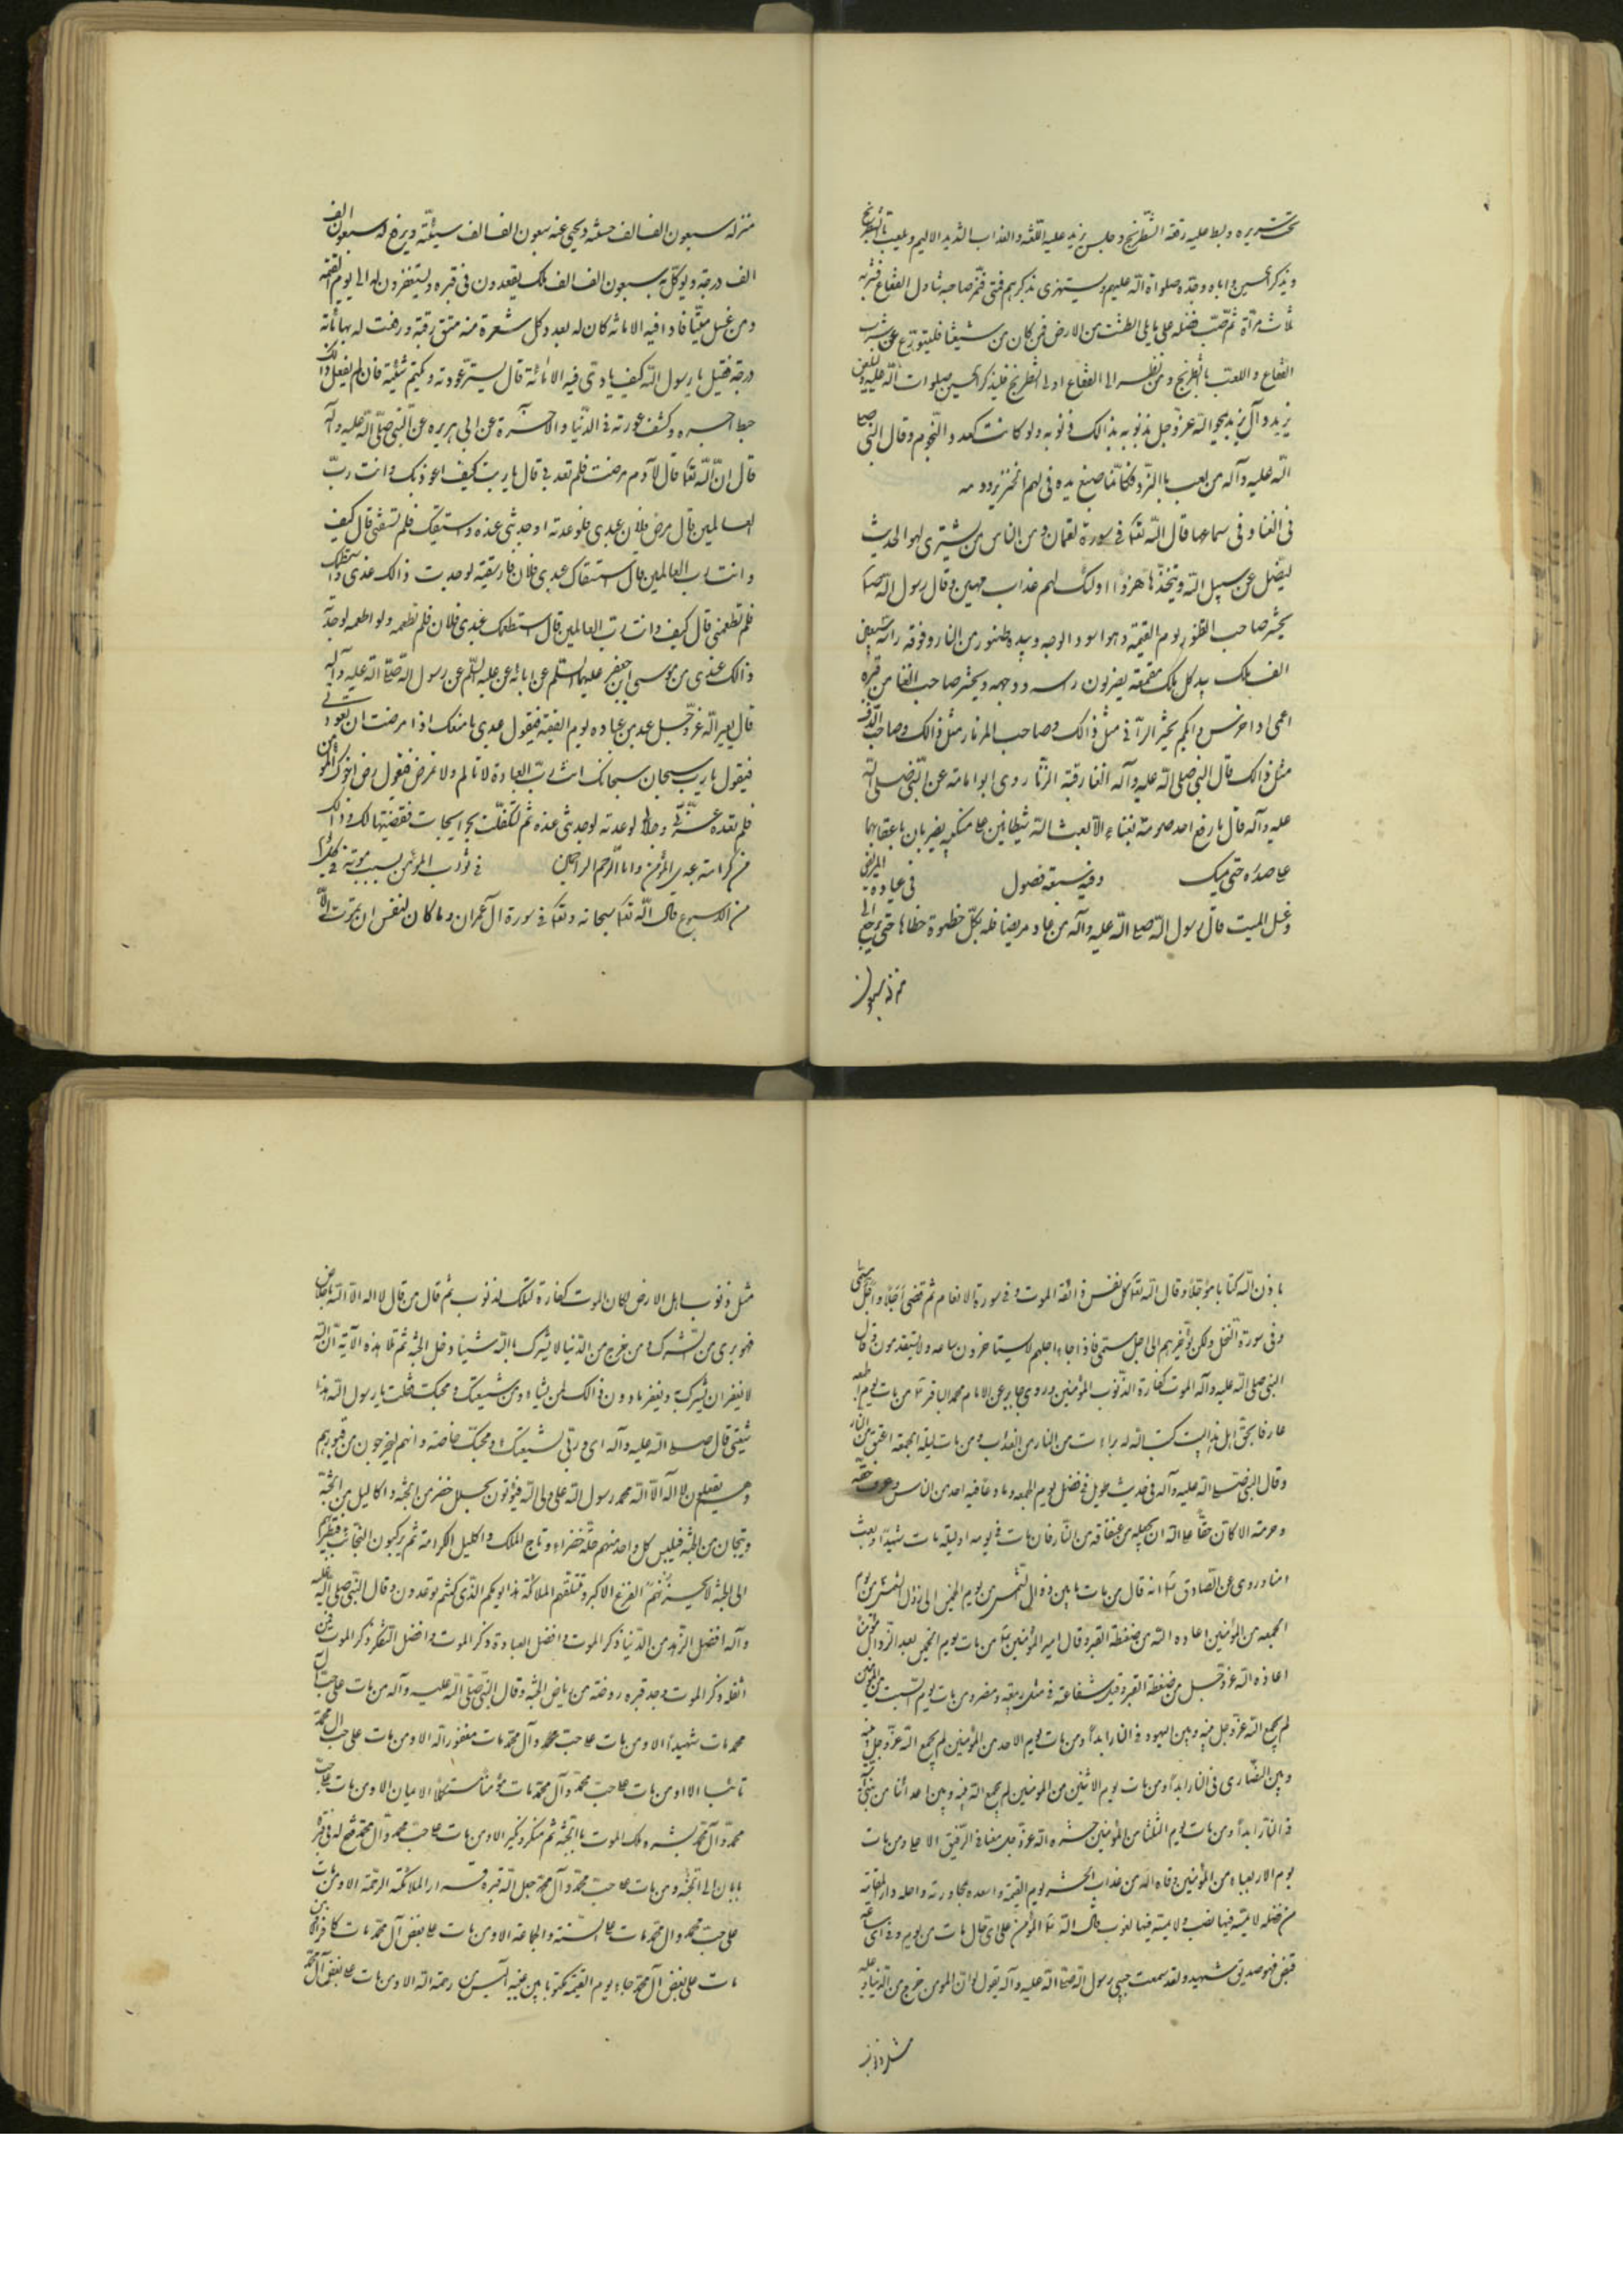 تحت سريره وبسط عليه رقعة الشطرنج وجلس يزيد عليه اللعنة والعذاب الشديد الاليم ويلعب بالشطرنج
ويذكر الحسين واباه وجده صلواة الله عليهم ويستهزى بذكرهم فمتى قمر صاحبه تناول الفقاع فشربه
ثلاث مراة ثم صب فضله على ما يلى الطشت من الارض فمن كان من شيعتنا فليتورع عن شرب
الفقاع واللعب بالشطرنج ومن نظر الى الفقاع او الى الشطرنج فليذكر الحسين صلوات الله عليه وليلعن
يزيد وآل يزيد يمحو الله عز وجل بذالك ذنوبه ولو كانت كعدد النجوم وقال النبى صلى
الله عليه وآله من لعب بالنرد فكانما صبغ يده فى لهم الخنزير ودمه
فى الغنا وفى سماعها قال الله تعا فى سورة لقمان ومن الناس من يشترى لهو الحديث
ليضل عن سبيل الله ويتخذها هزوا اولئك لهم عذاب مهين وقال رسول الله ص
يحشر صاحب الطنبور يوم القيمة وهو اسود الوجه وبيده طنبور من النار وفوقه راسه سبعون
الف ملك بيد كل ملك مقمعة يضربون راسه ووجهه ويحشر صاحب الغنا من قبره
اعمى واخرس وابكم يحشر الزانى مثل ذالك وصاحب المزمار مثل ذالك وصاحب الدف
مثل ذالك قال النبى صلى الله عليه وآله الغنا رقية الزنا روى ابو امامة عن النبى صلى الله
عليه وآله قال ما رفع احد صوته بغناء الا بعث الله شيطانين على منكبه يضربان باعقابهما
على صدره حتى يمسك وفيه سبعة فصول فى عيادة المريض
وغسل الميت قال رسول الله صلى الله عليه وآله من عاد مريضا فله بكل خطوة خطاها حتى يرجع الى
منزله سبعون
منزله سبعون الف الف حسنة ويمحى عنه سبعون الف الف سيئة ويرفع له سبعون الف
الف درجة ويوكل به سبعون الف الف ملك يقعدون فى قبره ويستغفرون له الى يوم القيمة
ومن غسل ميتا فادا فيه الامانة كان له بعدد كل شعرة منه عتق رقبة ورفعت له بها مائة
درجة فقيل يا رسول الله كيف يادى فيه الامانة قال يستر عورته ويكتم شينه فان لم يفعل ذالك
حبط اجره وكشف عورته فى الدنيا والاخرة عن ابى هريره عن النبى صلى الله عليه وآله
قال ان الله تعا قال لآدم مرضت فلم تعدنى قال يا رب كيف اعودك وانت رب
العالمين قال مرض فلان عبدى فلو عدته لوجدتنى عنده واستسقيتك فلم تسقنى قال كيف
وانت رب العالمين قال استسقاك عبدى فلان فلو سقيته لوجدت ذالك عندى واستطعمتك
فلم تطعمنى قال كيف وانت رب العالمين قال استطعمك عبدى فلان فلم تطعمه ولو اطعمه لوجدت
ذالك عندى من موسى ابن جعفر عليهما السلم عن ابائه عن عليه السلم عن رسول الله صلى الله عليه وآله
قال يعير الله عز وجل عبد من عباده يوم القيمة فيقول عبدى ما منعك اذا مرضت ان تعودنى
فيقول يا رب سبحان سبحانك انت رب العباد لا تالم ولا تمرض فيقول مرض اخوك المؤمن
فلم تعده عزتى وجلالى لو عدته لوجدتنى عنده ثم لتكفلت بحوايجات فقضيتها لك وذالك
من كرامة عبدى المؤمن وانا الرحم الراحمين فى ثواب المؤمن بسبب موته فى كل يوم
من الاسبوع قال الله تعا سبحانه وتعا فى سورة آل عمران وما كان لنفس ان تموت الا
باذن الله كتابا مؤجلا وقال الله تعا كل نفس ذائقة الموت وفى سورة الانعام ثم قضى اجلا واجل مسمى
وفى سورة النحل ولكن يؤخرهم الى اجل مسمى فاذا جاء اجلهم لا يستاخرون ساعه ولا يستقدمون قال
النبى صلى الله عليه وآله الموت كفارة الذنوب المؤمنين وروى جابر عن الامام محمد الباقر ع من مات يوم الجمعه
عارفا بحق اهل هذا البيت كتب الله له براءت من النار من العذاب ومن مات ليلة الجمعه اعتق من النار
وقال النبى صلى الله عليه وآله فى حديث طويل فى فضل يوم الجمعه وما دعا فيه احد من الناس وعرف حقه
وحرمته الا كان حقا على الله ان يجعله من عتقائه من النار فان مات فى يومه او ليلته مات شهيدا وبعث
امنا وروى عن الصادق ع انه قال من مات ما بين زوال الشمس من يوم الخميس الى زوال الشمس من يوم
الجمعه من المؤمنين اعاذه الله من ضغطة القبر وقال امير المؤمنين ع من مات يوم الخميس بعد الزوال مؤمنا
اعاذه الله عز وجل من ضغطة القبر وقبل شفاعته فى مثل ربيعة ومضر ومن مات يوم السبت من المؤمنين
لم يجمع الله عز وجل بينه وبين اليهود فى النار ابدا ومن مات يوم الاحد من المؤمنين لم يجمع الله عز وجل بينه
وبين النصارى فى النار ابدا ومن مات يوم الاثنين من المؤمنين لم يجمع الله بينه وبين اعدائنا من بنى امية
فى النار ابدا ومن مات يوم الثلثا من المؤمنين حشره الله عز وجل معنا فى الرفيق الاعلى ومن مات
يوم الاربعاء من المؤمنين وقاه الله من عذاب الحشر يوم القيمة واسعده بمجاورته واحله دار المقامة
من فضله لا يمسه فيها نصب ولا يمسه فيها لغوب وقال ع المؤمن على اى حال مات من يوم وفى اى ساعة
قبض فهو صديق شهيد ولقد سمعت حبيبى رسول الله صلى الله عليه وآله يقول لو ان المؤمن خرج من الدنيا وعليه
مثل ذنوب
مثل ذنوب اهل الارض لكان الموت كفارة لتلك لذنوب ثم قال من قال لا اله الا الله باخلاص
فهو برى من الشرك ومن خرج من الدنيا لا يشرك بالله شيئا دخل الجنة ثم تلا هذه الآية ان الله
لا يغفر ان يشرك به ويغفر ما دون ذالك لمن يشاء من شيعتك ومحبك فقلت يا رسول الله هذا
شيعتى قال صلى الله عليه وآله اى وربى لشيعتك ومحبك خاصة وانهم ليخرجون من قبورهم
وهم يقولون لا اله الا الله محمد رسول الله على ولى الله فيؤتون بحلل خضر من الجنة واكاليل من الجنة
وتيجان من الجنة فيلبس كل واحد منهم حلة خضراء وتاج الملك واكليل الكرامة ثم يركبون النجائب فتطير بهم
الى الجنة لا يحزنهم الفزع الاكبر وتتلقهم الملائكة هذا يومكم الذى كنتم توعدون وقال النبى صلى الله عليه
وآله افضل الزهد من الدنيا ذكر الموت وافضل العبادة ذكر الموت وافضل التفكر ذكر الموت فمن
اثقله ذكر الموت وجد قبره روضة من رياض الجنة وقال النبى صلى الله عليه وآله من مات على حب آل
محمد مات شهيدا الا ومن مات على حب محمد وآل محمد مات مغفورا له الا ومن مات على حب آل محمد
تائبا الا ومن مات على حب محمد وآل محمد مات مؤمنا مستكملا الايمان الا ومن مات على حب
محمد وآل محمد بشره ملك الموت بالجنة ثم منكر ونكير الا ومن مات على حب محمد وآل محمد فتح له فى قبره
بابان الى الجنة ومن مات على حب محمد وآل محمد جعل الله قبره قرار الملائكة الرحمة الا ومن مات
على حب محمد وال محمد مات على السنة والجماعة الا ومن مات على بغض آل محمد مات كافرا الا من
مات على بغض آل محمد جاء يوم القيمة مكتوبا بين عينيه آيس من رحمة الله الا ومن مات على بغض آل محمد